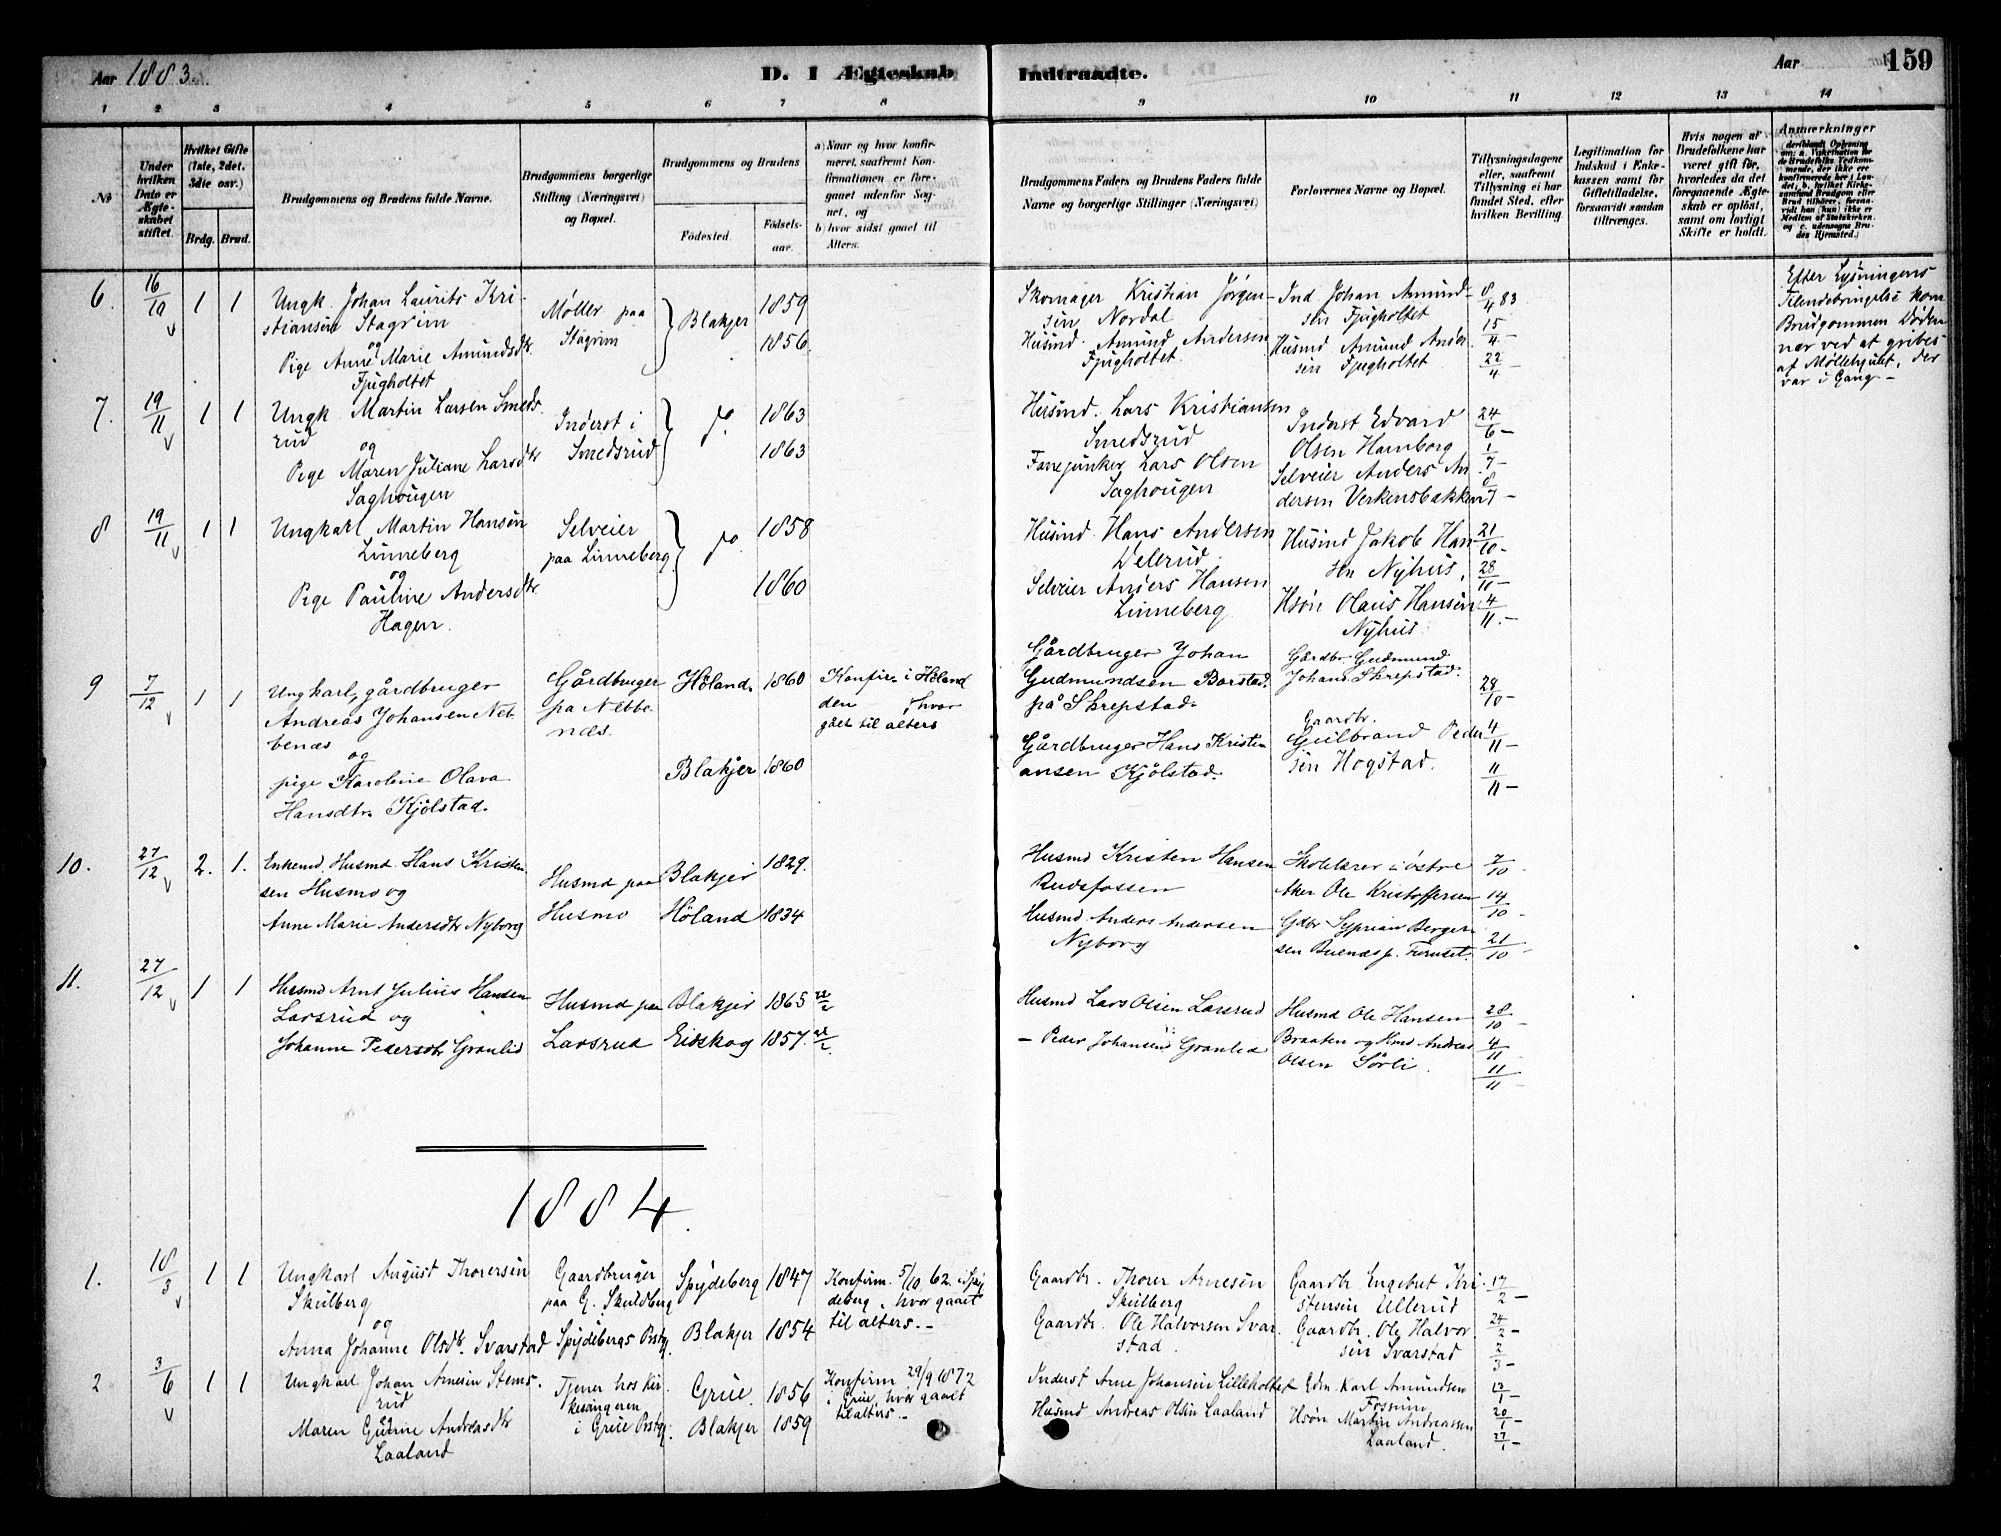 Aar 1883.
D. I Ægteskab
Indtraadte.
Aar
159
1 2 3 4 5 6 7 8 9 10 11 12 13 14
№
Under hvilken Dato er Ægteskabet stiftet.
Hvilket Gifte (1ste, 2det, 3die osv.)
Brdg. Brud.
Brudgommens og Brudens fulde Navne.
Brudgommens borgerlige Stilling (Næringsvei) og Bopæl.
Brudgommens og Brudens
Fødested.
Fødselsaar.
a) Naar og hvor konfirmeret, saafremt Konfirmationen er foregaaet udenfor Sognet, og
b) hvor sidst gaaet til Alters.
Brudgommens Faders og Brudens Faders fulde Navne og borgerlige Stillinger (Næringsvei)
Forlovernes Navne og Bopæl.
Tillysningsdagene eller, saafremt Tillysning ei har fundet Sted, efter hvilken Bevilling.
Legitimation for Indskud i Enkekassen samt for Giftetilladelse, forsaavidt saadan tiltrænges.
Hvis nogen af Brudefolkene har været gift før, hvorledes da det foregaaende Ægteskab er opløst, samt om lovligt Skifte er holdt.
Anmærkninger
6.
16/10
1 1
Ungk. Johan Laurits Kri-
stiansen Stagrim
og
Pige Anne Marie Amundsdtr.
Fjugholtet
Møller paa
Stagrim
Blakjer
1859
1856.
Skomager Kristian Jørgen-
sen Nordal
Husmd. Amund Andersen
Fjugholtet.
Ind. Johan Amund-
sen Fjugholtet
Husmd Amund Ander
sen Fjugholtet
8/4 83
15/4 -
22/4
Efter Lysningens
Tilendebringelse kom
Brudgommen Døden
nær ved at gribes
af Møllehjulet, der
var i Gang. -
7.
19/11
1 1
Ungk Martin Larsen Smeds-
rud
og
Pige Maren Juliane Larsdtr
Saghougen
Inderst i
Smedsrud
do.
1863
1863
Husmd. Lars Kristiansen
Smedsrud
Fanejunker Lars Olsen
Saghougen
Inderst Edvard
Olsen Hamborg
Selveier Anders An
dersen Verkensbakken
24/6 -
1/7 -
8/7 -
8
19/11
1 1
Ungkarl Martin Hansen
Linneberg
og
Pige Pauline Andersdtr.
Hagen.
Selveier
paa Linneberg
do.
1858
1860
Husmd. Hans Andersen
Delerud
Selveier Anders Hansen
Linneberg
Husmd Jakob Han
sen Nyhus,
Hsøn Olaus Hansen
Nyhus
21/10 -
28/11 -
4/11 -
9
7/12
1 1
Ungkarl, gårdbruger
Andreas Johansen Neb-
benæs
og
pige Karoline Olava
Hansdtr. Kjölstad.
Gårdbruger
på Nebbe
næs.
Höland.
Blakjer
1860
1860
Konfir. i Höland
den , hvor
gået til alters
Gårdbruger Johan
Gudmundsen Borstad
på Skrepstad.
Gårdbruger Hans Kristi
ansen Kjölstad.
Gårdbr. Gudmund
Johans. Skrepstad.
Gaardbr.
Gulbrand Peder
sen Hogstad.
28/10 -
4/11 -
11/11 -
10.
27/12
2. 1.
Enkemd. Husmd. Hans Kristen
sen Husmo og
Anne Marie Andersdtr Nyborg
Husmd paa
Husmo
Blakjer
Höland
1829.
1834
Husmd Kristen Hansen
Rudsfossen
Husmd Anders Andersen
Nyborg
Skolelærer i östre
Aker Ole Kristoffersen
Gdbr Syprian Berger
sen Buenæs p. Furuset.
7/10
14/10 -
21/10 -
11.
27/12
1 1
Husmd Arnt Julius Hansen
Larsrud og
Johanne Pedersdtr Granlid
Husmd paa
Larsrud
Blakjer
Eidskog
1865
1857.
Husmd Lars Olsen Larsrud
- Peder Johansen Granlid
Husmd Ole Hansen
Braaten og Hmd Andreas
Olsen Sörli.
28/10 -
4/11 -
11/11 -
1884.
1.
18/3
1 1
Ungkarl August Thorersen
Skulberg
og
Anna Johanne Olsdtr. Svarstad
Gaardbruger
paa G. Skuldberg
Spydebergs Prstg.
Spydeberg
Blakjer
1847
1854
Konfirm. 5/10 62 i Spy
deberg, hvor gaaet
til alters. -
Gaardbr. Thorer Arnesen
Skulberg
Gaardbr. Ole Halvorsen Svar-
stad.
Gaardbr Engebret Kri-
stensen Ullerud
Gaardbr. Ole Halvor
sen Svarstad
17/2 -
24/2 -
2/3 -
2
3/6
1 1
Ungkarl Johan Arnesen Stens-
rud
og
Maren Gunine Andreasdtr
Laaland
Tjener hos Kir-
kesangeren
i Grue Prstg.
Grue.
Blakjer
1856
1859
Konfirm 29/9 1872
i Grue, hvor gaaet
til alters. -
Inderst Arne Johansen Lilleholtet
Husmd Andreas Olsen Laaland
Edm. Karl Amundsen
Fosnum
Hsøn Martin Andreassen
Laaland.
13/1 -
20/1 -
27/1 -